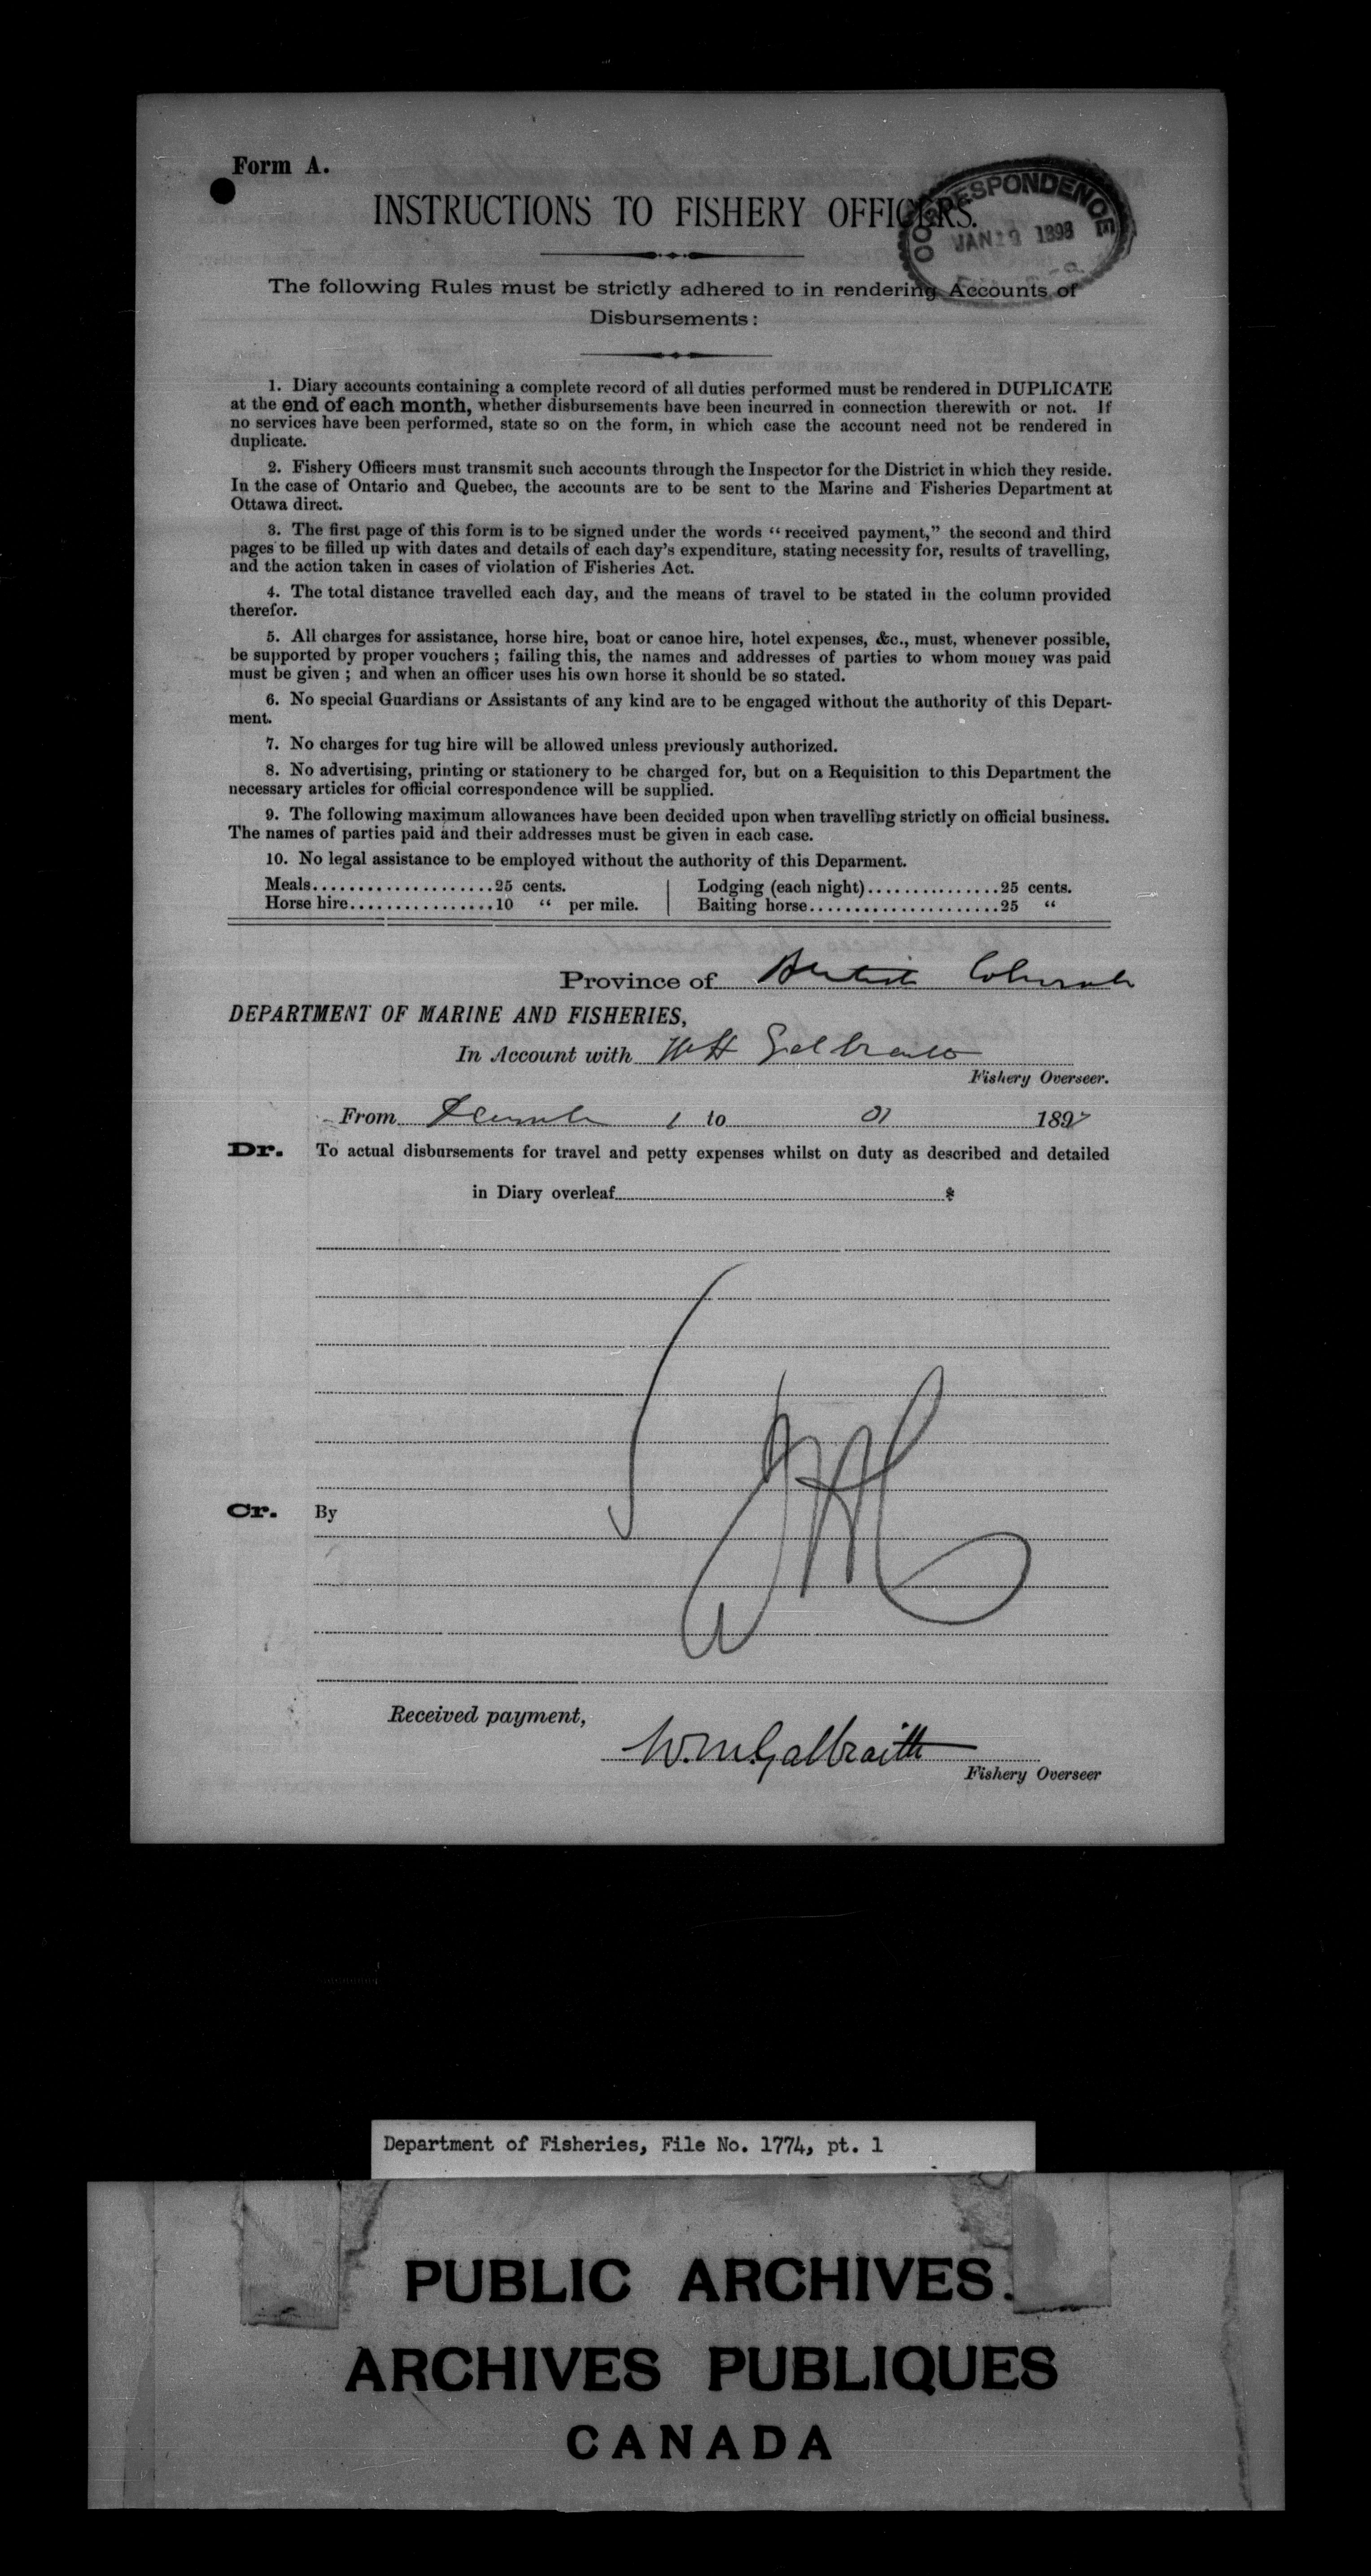 Form A.
INSTRUCTIONS TO FISHERY OFFICERS.
CORRESPONDENCE
JAN 19 1898
The following Rules must be strictly adhered to in rendering Accounts of
Disbursements:
1. Diary accounts containing a complete record of all duties performed must be rendered in DUPLICATE
at the end of each month, whether disbursements have been incurred in connection therewith or not. If
no services have been performed, state so on the form, in which case the account need not be rendered in
duplicate.
2. Fishery Officers must transmit such accounts through the Inspector for the District in which they reside.
In the case of Ontario and Quebec, the accounts are to be sent to the Marine and Fisheries Department at
Ottawa direct.
3. The first page of this form is to be signed under the words “received payment,” the second and third
pages to be filled up with dates and details of each day's expenditure, stating necessity for, results of travelling,
and the action taken in cases of violation of Fisheries Act.
4. The total distance travelled each day, and the means of travel to be stated in the column provided
therefor.
5. All charges for assistance, horse hire, boat or canoe hire, hotel expenses, &c., must, whenever possible,
be supported by proper vouchers ; failing this, the names and addresses of parties to whom money was paid
must be given ; and when an officer uses his own horse it should be so stated.
6. No special Guardians or Assistants of any kind are to be engaged without the authority of this Depart-
ment.
7. No charges for tug hire will be allowed unless previously authorized.
8. No advertising, printing or stationery to be charged for, but on a Requisition to this Department the
necessary articles for official correspondence will be supplied.
9. The following maximum allowances have been decided upon when travelling strictly on official business.
The names of parties paid and their addresses must be given in each case.
10. No legal assistance to be employed without the authority of this Deparment.
Meals....................25 cents. Lodging (each night)...............25 cents.
Horse hire................10 “ per mile. Baiting horse.....................25 “
Province of British Columbia
DEPARTMENT OF MARINE AND FISHERIES,
In Account with Galbraith
Fishery Overseer.
From December 1 to 31 1897
Dr. To actual disbursements for travel and petty expenses whilst on duty as described and detailed
in Diary overleaf $
Cr. By
Received payment,
W.M. Galbraith
Fishery Overseer
Department of Fisheries, File No. 1774, pt. 1
PUBLIC ARCHIVES.
ARCHIVES PUBLIQUES
CANADA